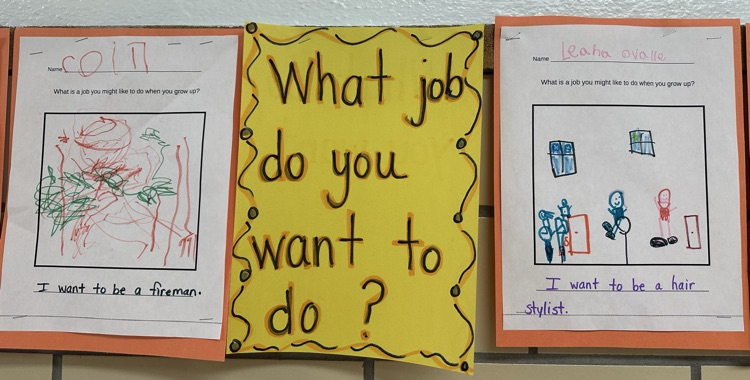 Name COlIN
What is a job you might like to do when you grow up?
I want to be a fireman.
What job
do you
want to
do ?
Name Leaha ovalle
What is a job you might like to do when you grow up?
I want to be a hair
stylist.